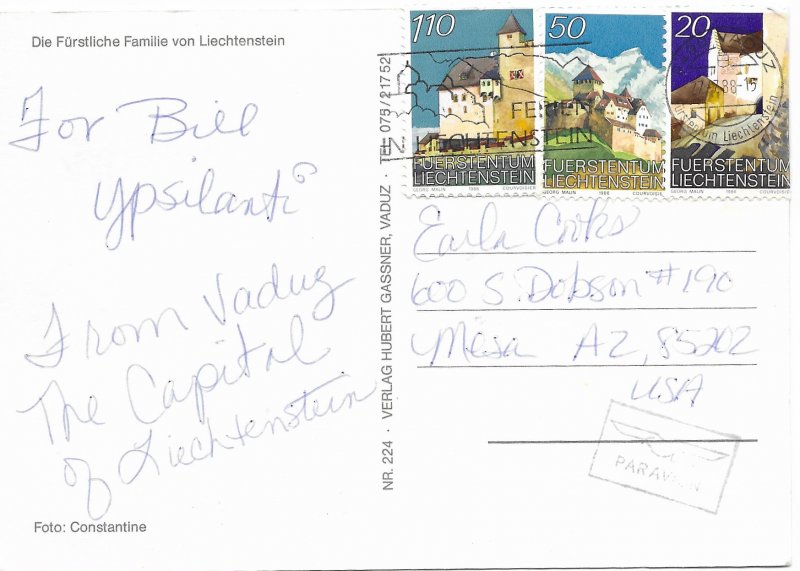 Die Fürstliche Familie von Liechtenstein
For Bill
Ypsilanti
From Vaduz
The Capital
of Liechtenstein
Foto: Constantine
NR. 224 · VERLAG HUBERT GASSNER, VADUZ · TEL. 075/21752
110
FÜRSTENTUM
LIECHTENSTEIN
GEORG MALIN 1986 COURVOISIER
50
FÜRSTENTUM
LIECHTENSTEIN
GEORG MALIN 1986 COURVOISIER
20
FÜRSTENTUM
LIECHTENSTEIN
GEORG MALIN 1986 COURVOISIER
FERIEN
LIECHTENSTEIN
88-15
Fürstentum Liechtenstein
Earla Cooks
600 S. Dobson #190
Mesa AZ, 85202
USA
PAR AVION